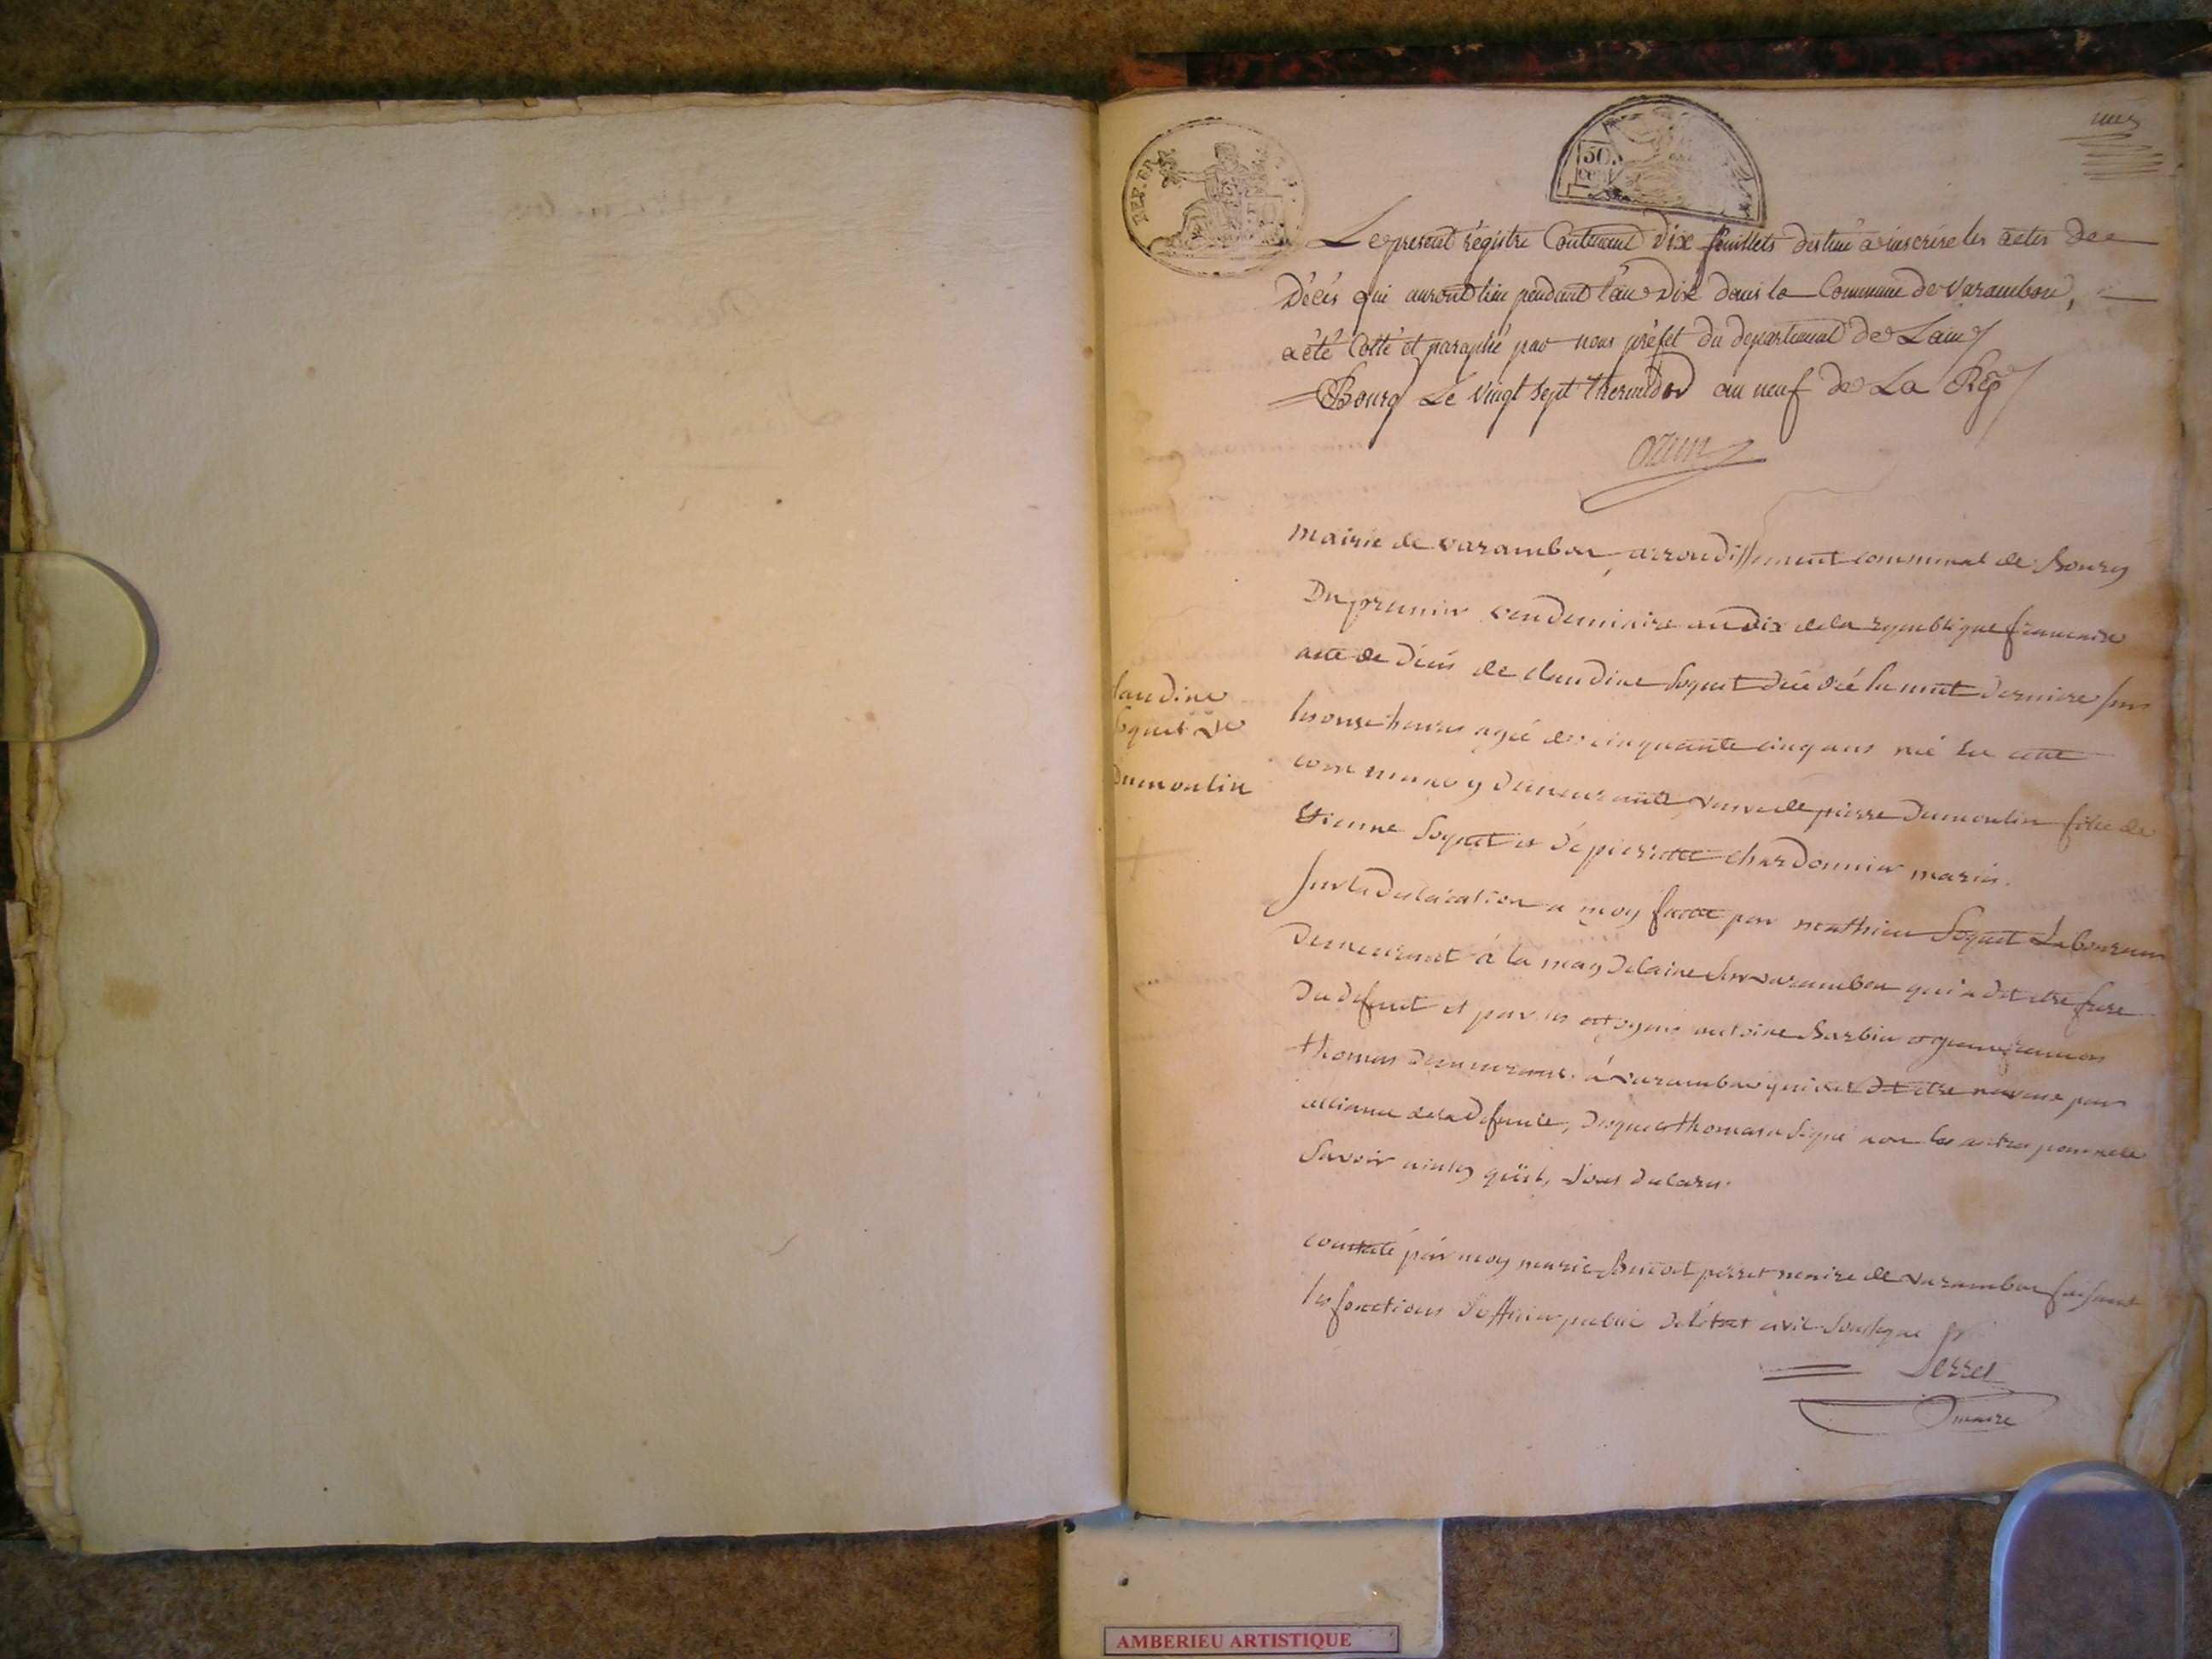 une
REP. FRA
50
50.
cent
Le present régistre Contenant dix feuillets destiné a inscrire les actes de
Décès qui auront lieu pendant l'an dix dans la Commune de Varambon,
a été Cotté et paraphé par nous préfet du département de Lain
Bourg Le vingt sept thermidor an neuf de La Rep
ozun
mairie de varambon, arrondissement communal de Bourg
Du premier vendemiaire an dix de la republique francaise
acte de décès de claudine Soquet décédé la nuit derniere sur
les onze heures agée de cinquante cinq ans née en cette
commune y demeurante veuve de pierre Dumoulin fille de
Etienne Soquet et de pierrette chardonnier mariés.
Sur la declaration a moy faitte par mathieu Soquet Laboureur
demeurant à la magdelaine sur varambon qui a dit etre frere
du defunt et par les citoyens antoine Barbier et
thomas demeurants à varambon qui ont dit etre neveux par
alliance de la defunte, desquels thomas a signé non les autres pour ne le
savoir ainsy qu'ils l'ont declaré.
constaté par moy marie Benoit perret maire de varambon faisant
les fonctions d'officier public de l'état civil soussigné
Perret
maire
claudine
Soquet ve
Dumoulin
AMBERIEU ARTISTIQUE